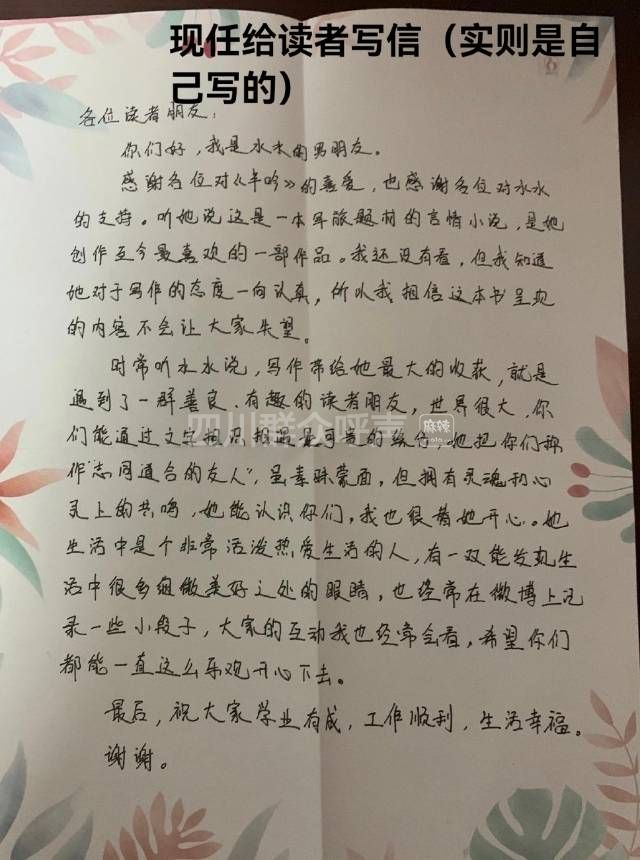 现任给读者写信（实则是自
己写的）
各位读者朋友：
你们好，我是水水的男朋友。
感谢各位对《半吟》的喜爱，也感谢各位对水水
的支持。听她说这是一本军旅题材的言情小说，是她
创作至今最喜欢的一部作品。我还没有看，但我知道
她对于写作的态度一向认真，所以我相信这本书呈现
的内容不会让大家失望。
时常听水水说，写作带给她最大的收获，就是
遇到了一群善良、有趣的读者朋友，世界很大，你
们能通过文字相识相知是最可贵的缘分，她把你们称
作“志同道合的友人”，虽素昧蒙面，但拥有灵魂和心
灵上的共鸣，她能认识你们，我也很替她开心。她
生活中是个非常活泼热爱生活的人，有一双能发现生
活中很多细微美好之处的眼睛，也经常在微博上记
录一些小段子，大家的互动我也经常会看，希望你们
都能一直这么乐观开心下去。
最后，祝大家学业有成，工作顺利，生活幸福。
谢谢。
四川群众呼声
麻辣